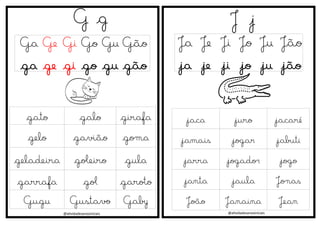 G g
Ga Ge Gi Go Gu Gão
ga ge gi go gu gão
gato galo girafa
gelo gavião goma
geladeira goleiro gula
garrafa gol garoto
Gugu Gustavo Gaby
@atividadesensiniciais
J j
Ja Je Ji Jo Ju Jão
ja je ji jo ju jão
jaca juro jacaré
jamais jogar jabuti
jarra jogador jogo
janta jaula Jonas
João Janaina Jean
@atividadesensiniciais